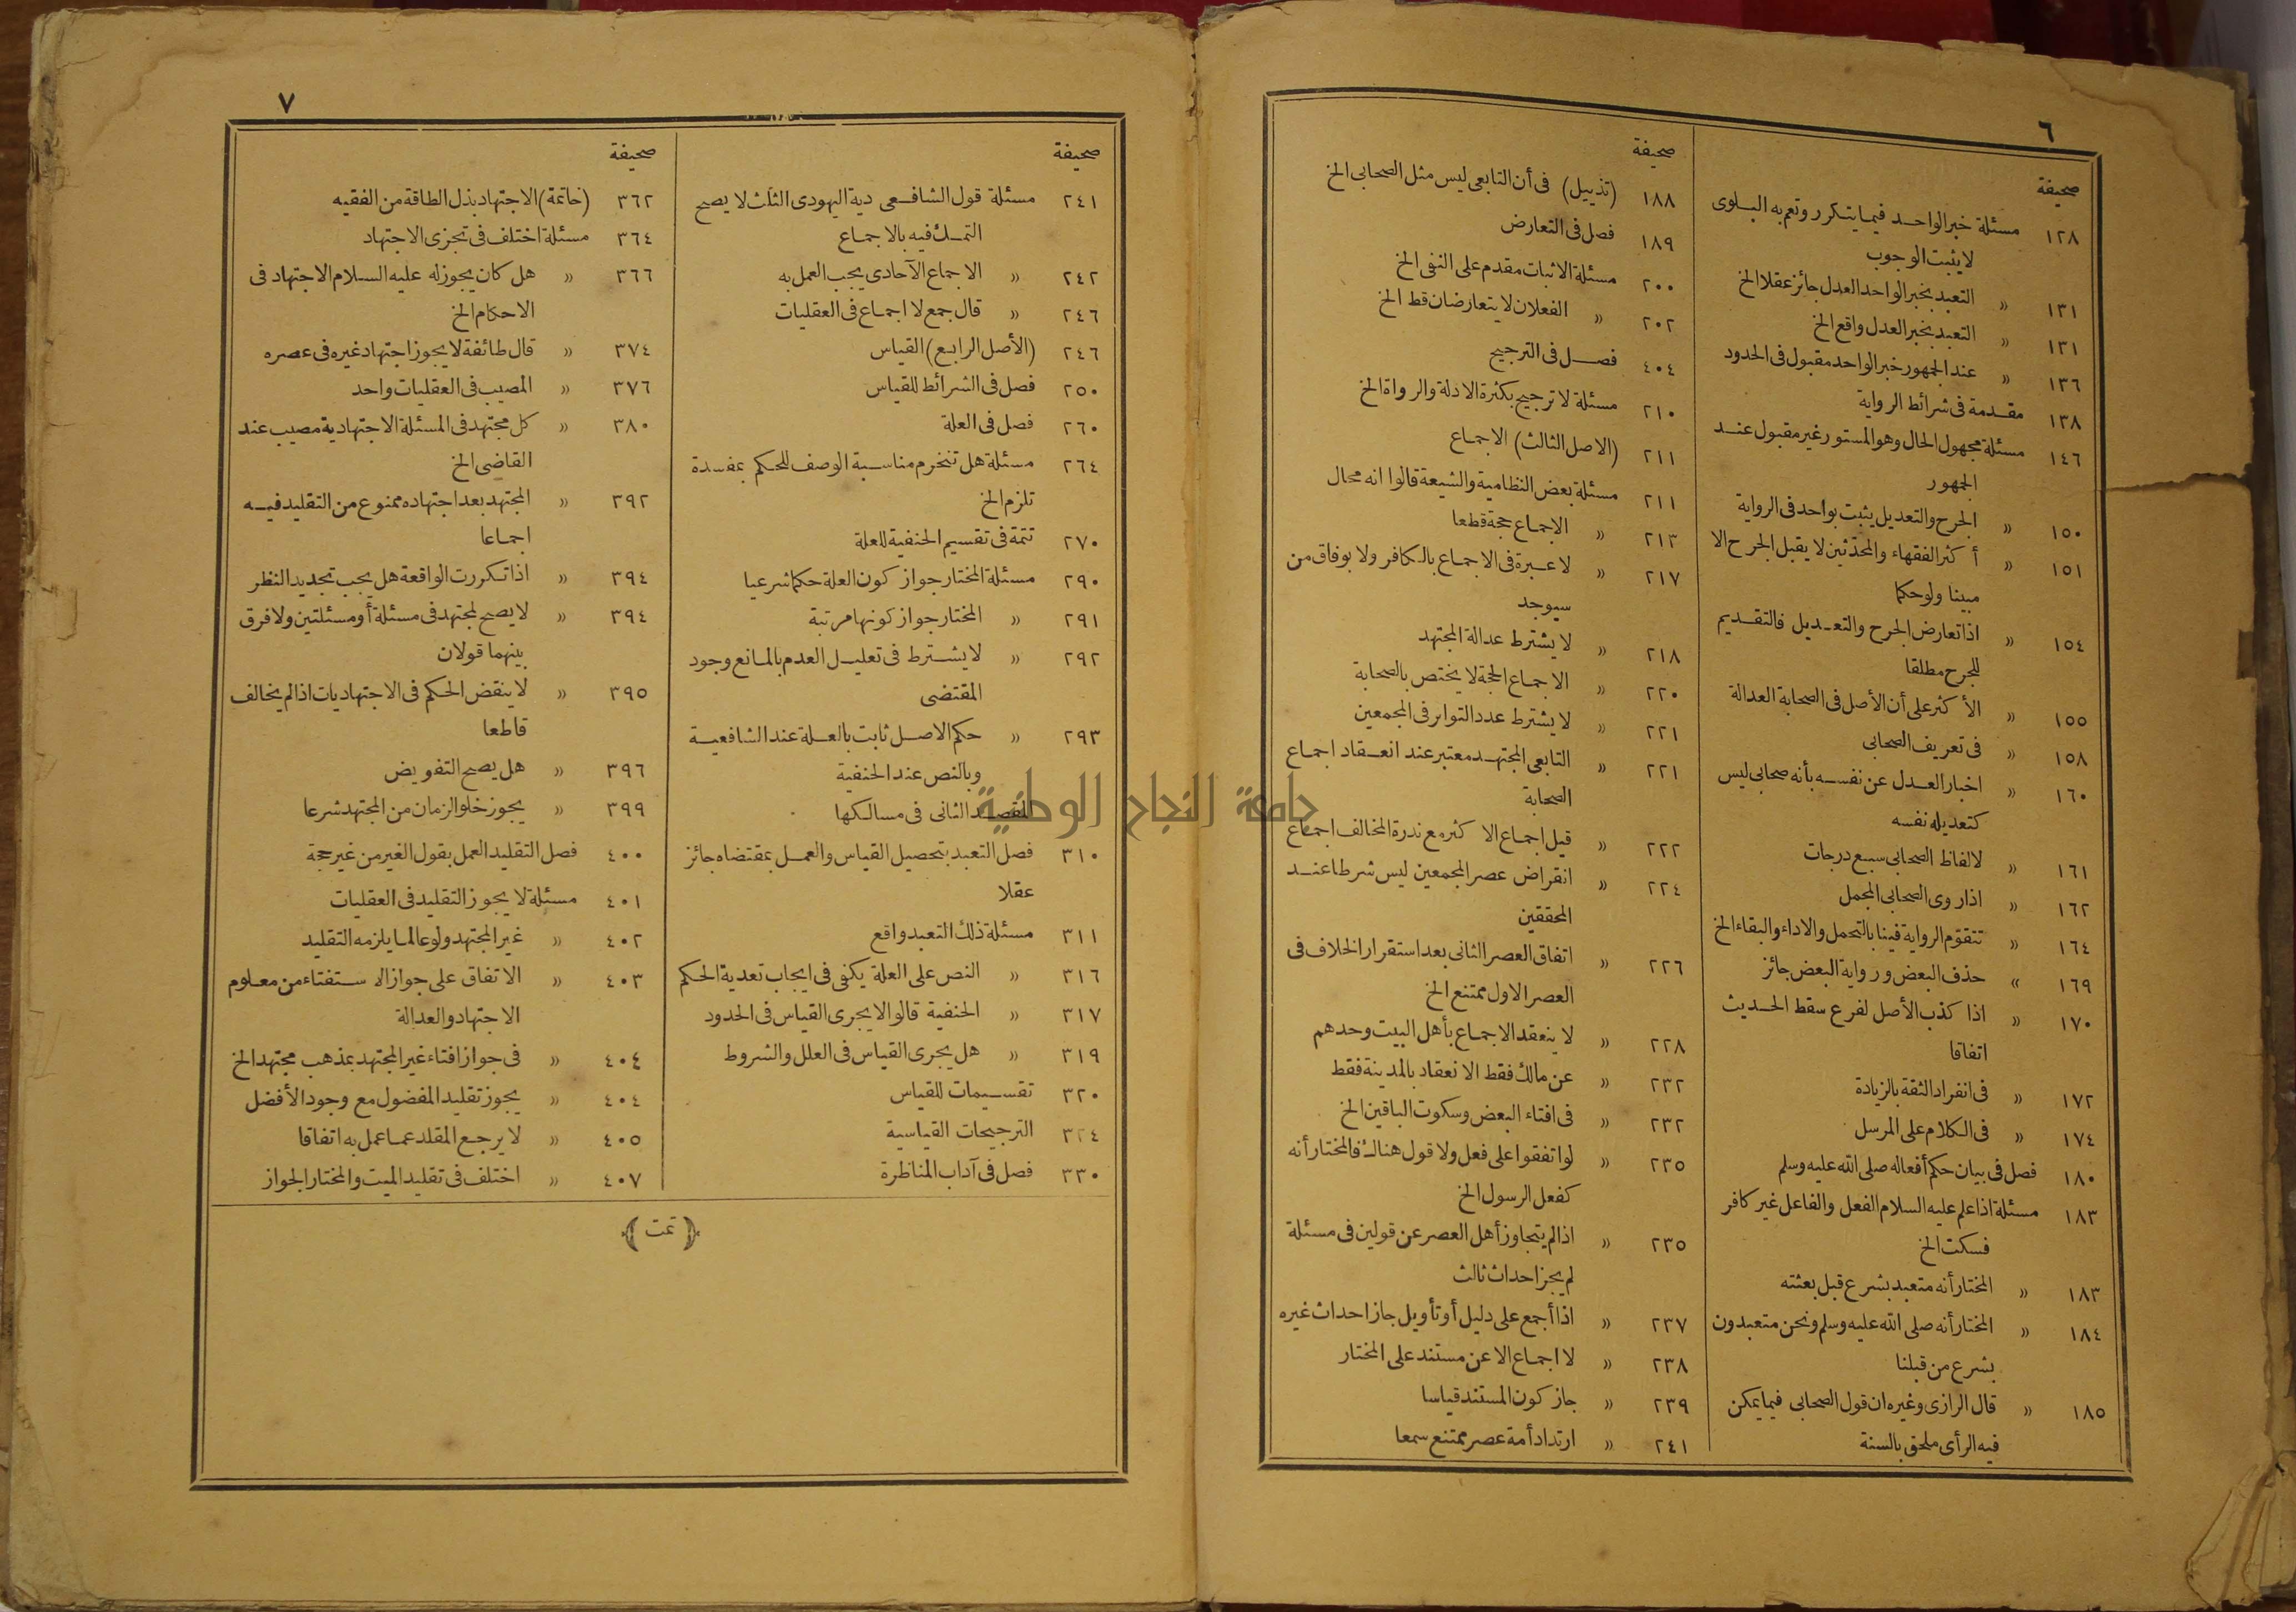 ٦
صحيفة
١٢٨ مسئلة خبر الواحد فيما يتكرر وتعم به البلوى
لا يثبت الوجوب
١٣١ » التعبد بخبر الواحد العدل جائز عقلا الخ
١٣١ » التعبد بخبر العدل واقع الخ
١٣٦ » عند الجمهور خبر الواحد مقبول فى الحدود
١٣٨ مقدمة فى شرائط الرواية
١٤٦ مسئلة مجهول الحال وهو المستور غير مقبول عند
الجمهور
١٥٠ » الجرح والتعديل يثبت بواحد فى الرواية
١٥١ » أكثر الفقهاء والمحدّثين لا يقبل الجرح الا
مبينا ولو حكما
١٥٤ » اذا تعارض الجرح والتعديل فالتقديم
للجرح مطلقا
١٥٥ » الأكثر على أن الأصل فى الصحابة العدالة
١٥٨ » فى تعريف الصحابى
١٦٠ » اخبار العدل عن نفسه بأنه صحابى ليس
كتعديله نفسه
١٦١ » لالفاظ الصحابى سبع درجات
١٦٢ » اذا روى الصحابى المجمل
١٦٤ » تتقوّم الرواية فينا بالتحمل والاداء والبقاء الخ
١٦٩ » حذف البعض ورواية البعض جائز
١٧٠ » اذا كذب الأصل لفرع سقط الحديث
اتفاقا
١٧٢ » فى انفراد الثقة بالزيادة
١٧٤ » فى الكلام على المرسل
١٨٠ فصل فى بيان حكم أفعاله صلى الله عليه وسلم
١٨٣ مسئلة اذا علم عليه السلام الفعل والفاعل غير كافر
فسكت الخ
١٨٣ » المختار أنه متعبد بشرع قبل بعثته
١٨٤ » المختار أنه صلى الله عليه وسلم ونحن متعبدون
بشرع من قبلنا
١٨٥ » قال الرازى وغيره ان قول الصحابى فيما يمكن
فيه الرأى ملحق بالسنة
صحيفة
١٨٨ (تذييل) فى أن التابعى ليس مثل الصحابى الخ
١٨٩ فصل فى التعارض
٢٠٠ مسئلة الاثبات مقدم على النفى الخ
٢٠٢ » الفعلان لا يتعارضان قط الخ
٤٠٤ فصل فى الترجيح
٢١٠ مسئلة لا ترجيح بكثرة الادلة والرواة الخ
٢١١ (الاصل الثالث) الاجماع
٢١١ مسئلة بعض النظامية والشيعة قالوا انه محال
٢١٣ » الاجماع حجة قطعا
٢١٧ » لا عبرة فى الاجماع بالكافر ولا بوفاق من
سيوجد
٢١٨ » لا يشترط عدالة المجتهد
٢٢٠ » الاجماع الحجة لا يختص بالصحابة
٢٢١ » لا يشترط عدد التواتر فى المجمعين
٢٢١ » التابعى المجتهد معتبر عند انعقاد اجماع
الصحابة
٢٢٢ » قيل اجماع الاكثر مع ندرة المخالف اجماع
٢٢٤ » انقراض عصر المجمعين ليس شرطا عند
المحققين
٢٢٦ » اتفاق العصر الثانى بعد استقرار الخلاف فى
العصر الاول ممتنع الخ
٢٢٨ » لا ينعقد الاجماع بأهل البيت وحدهم
٢٣٢ » عن مالك فقط الانعقاد بالمدينة فقط
٢٣٢ » فى افتاء البعض وسكوت الباقين الخ
٢٣٥ » لو اتفقوا على فعل ولا قول هناك فالمختار أنه
كفعل الرسول الخ
٢٣٥ » اذا لم يتجاوز أهل العصر عن قولين فى مسئلة
لم يجز احداث ثالث
٢٣٧ » اذا أجمع على دليل أو تأويل جاز احداث غيره
٢٣٨ » لا اجماع الا عن مستند على المختار
٢٣٩ » جاز كون المستند قياسا
٢٤١ » ارتداد أمة عصر ممتنع سمعا
٧
صحيفة
٢٤١ مسئلة قول الشافعى دية اليهودى الثلث لا يصح
التمسك فيه بالاجماع
٢٤٢ » الاجماع الآحادى يجب العمل به
٢٤٦ » قال جمع لا اجماع فى العقليات
٢٤٦ (الأصل الرابع) القياس
٢٥٠ فصل فى الشرائط للقياس
٢٦٠ فصل فى العلة
٢٦٤ مسئلة هل تنخرم مناسبة الوصف للحكم بمفسدة
تلزم الخ
٢٧٠ تتمة فى تقسيم الحنفية للعلة
٢٩٠ مسئلة المختار جواز كون العلة حكما شرعيا
٢٩١ » المختار جواز كونها مرتبة
٢٩٢ » لا يشترط فى تعليل العدم بالمانع وجود
المقتضى
٢٩٣ » حكم الاصل ثابت بالعلة عند الشافعية
وبالنص عند الحنفية
المقصد الثانى فى مسالكها
٣١٠ فصل التعبد بتحصيل القياس والعمل بمقتضاه جائز
عقلا
٣١١ مسئلة ذلك التعبد واقع
٣١٦ » النص على العلة يكفى فى ايجاب تعدية الحكم
٣١٧ » الحنفية قالوا لا يجرى القياس فى الحدود
٣١٩ » هل يجرى القياس فى العلل والشروط
٣٢٠ تقسيمات للقياس
٣٢٤ الترجيحات القياسية
٣٣٠ فصل فى آداب المناظرة
صحيفة
٣٦٢ (خاتمة) الاجتهاد بذل الطاقة من الفقيه
٣٦٤ مسئلة اختلف فى تجزى الاجتهاد
٣٦٦ » هل كان يجوز له عليه السلام الاجتهاد فى
الاحكام الخ
٣٧٤ » قال طائفة لا يجوز اجتهاد غيره فى عصره
٣٧٦ » المصيب فى العقليات واحد
٣٨٠ » كل مجتهد فى المسئلة الاجتهادية مصيب عند
القاضى الخ
٣٩٢ » المجتهد بعد اجتهاده ممنوع من التقليد فيه
اجماعا
٣٩٤ » اذا تكررت الواقعة هل يجب تجديد النظر
٣٩٤ » لا يصح لمجتهد فى مسئلة أو مسئلتين ولا فرق
بينهما قولان
٣٩٥ » لا ينقض الحكم فى الاجتهاديات اذا لم يخالف
قاطعا
٣٩٦ » هل يصح التفويض
٣٩٩ » يجوز خلو الزمان من المجتهد شرعا
٤٠٠ فصل التقليد العمل بقول الغير من غير حجة
٤٠١ مسئلة لا يجوز التقليد فى العقليات
٤٠٢ » غير المجتهد ولو عالما يلزمه التقليد
٤٠٣ » الاتفاق على جواز الاستفتاء من معلوم
الاجتهاد والعدالة
٤٠٤ » فى جواز افتاء غير المجتهد بمذهب مجتهد الخ
٤٠٤ » يجوز تقليد المفضول مع وجود الأفضل
٤٠٥ » لا يرجع المقلد عما عمل به اتفاقا
٤٠٧ » اختلف فى تقليد الميت والمختار الجواز
﴿ تمت ﴾
جامعة النجاح الوطنية